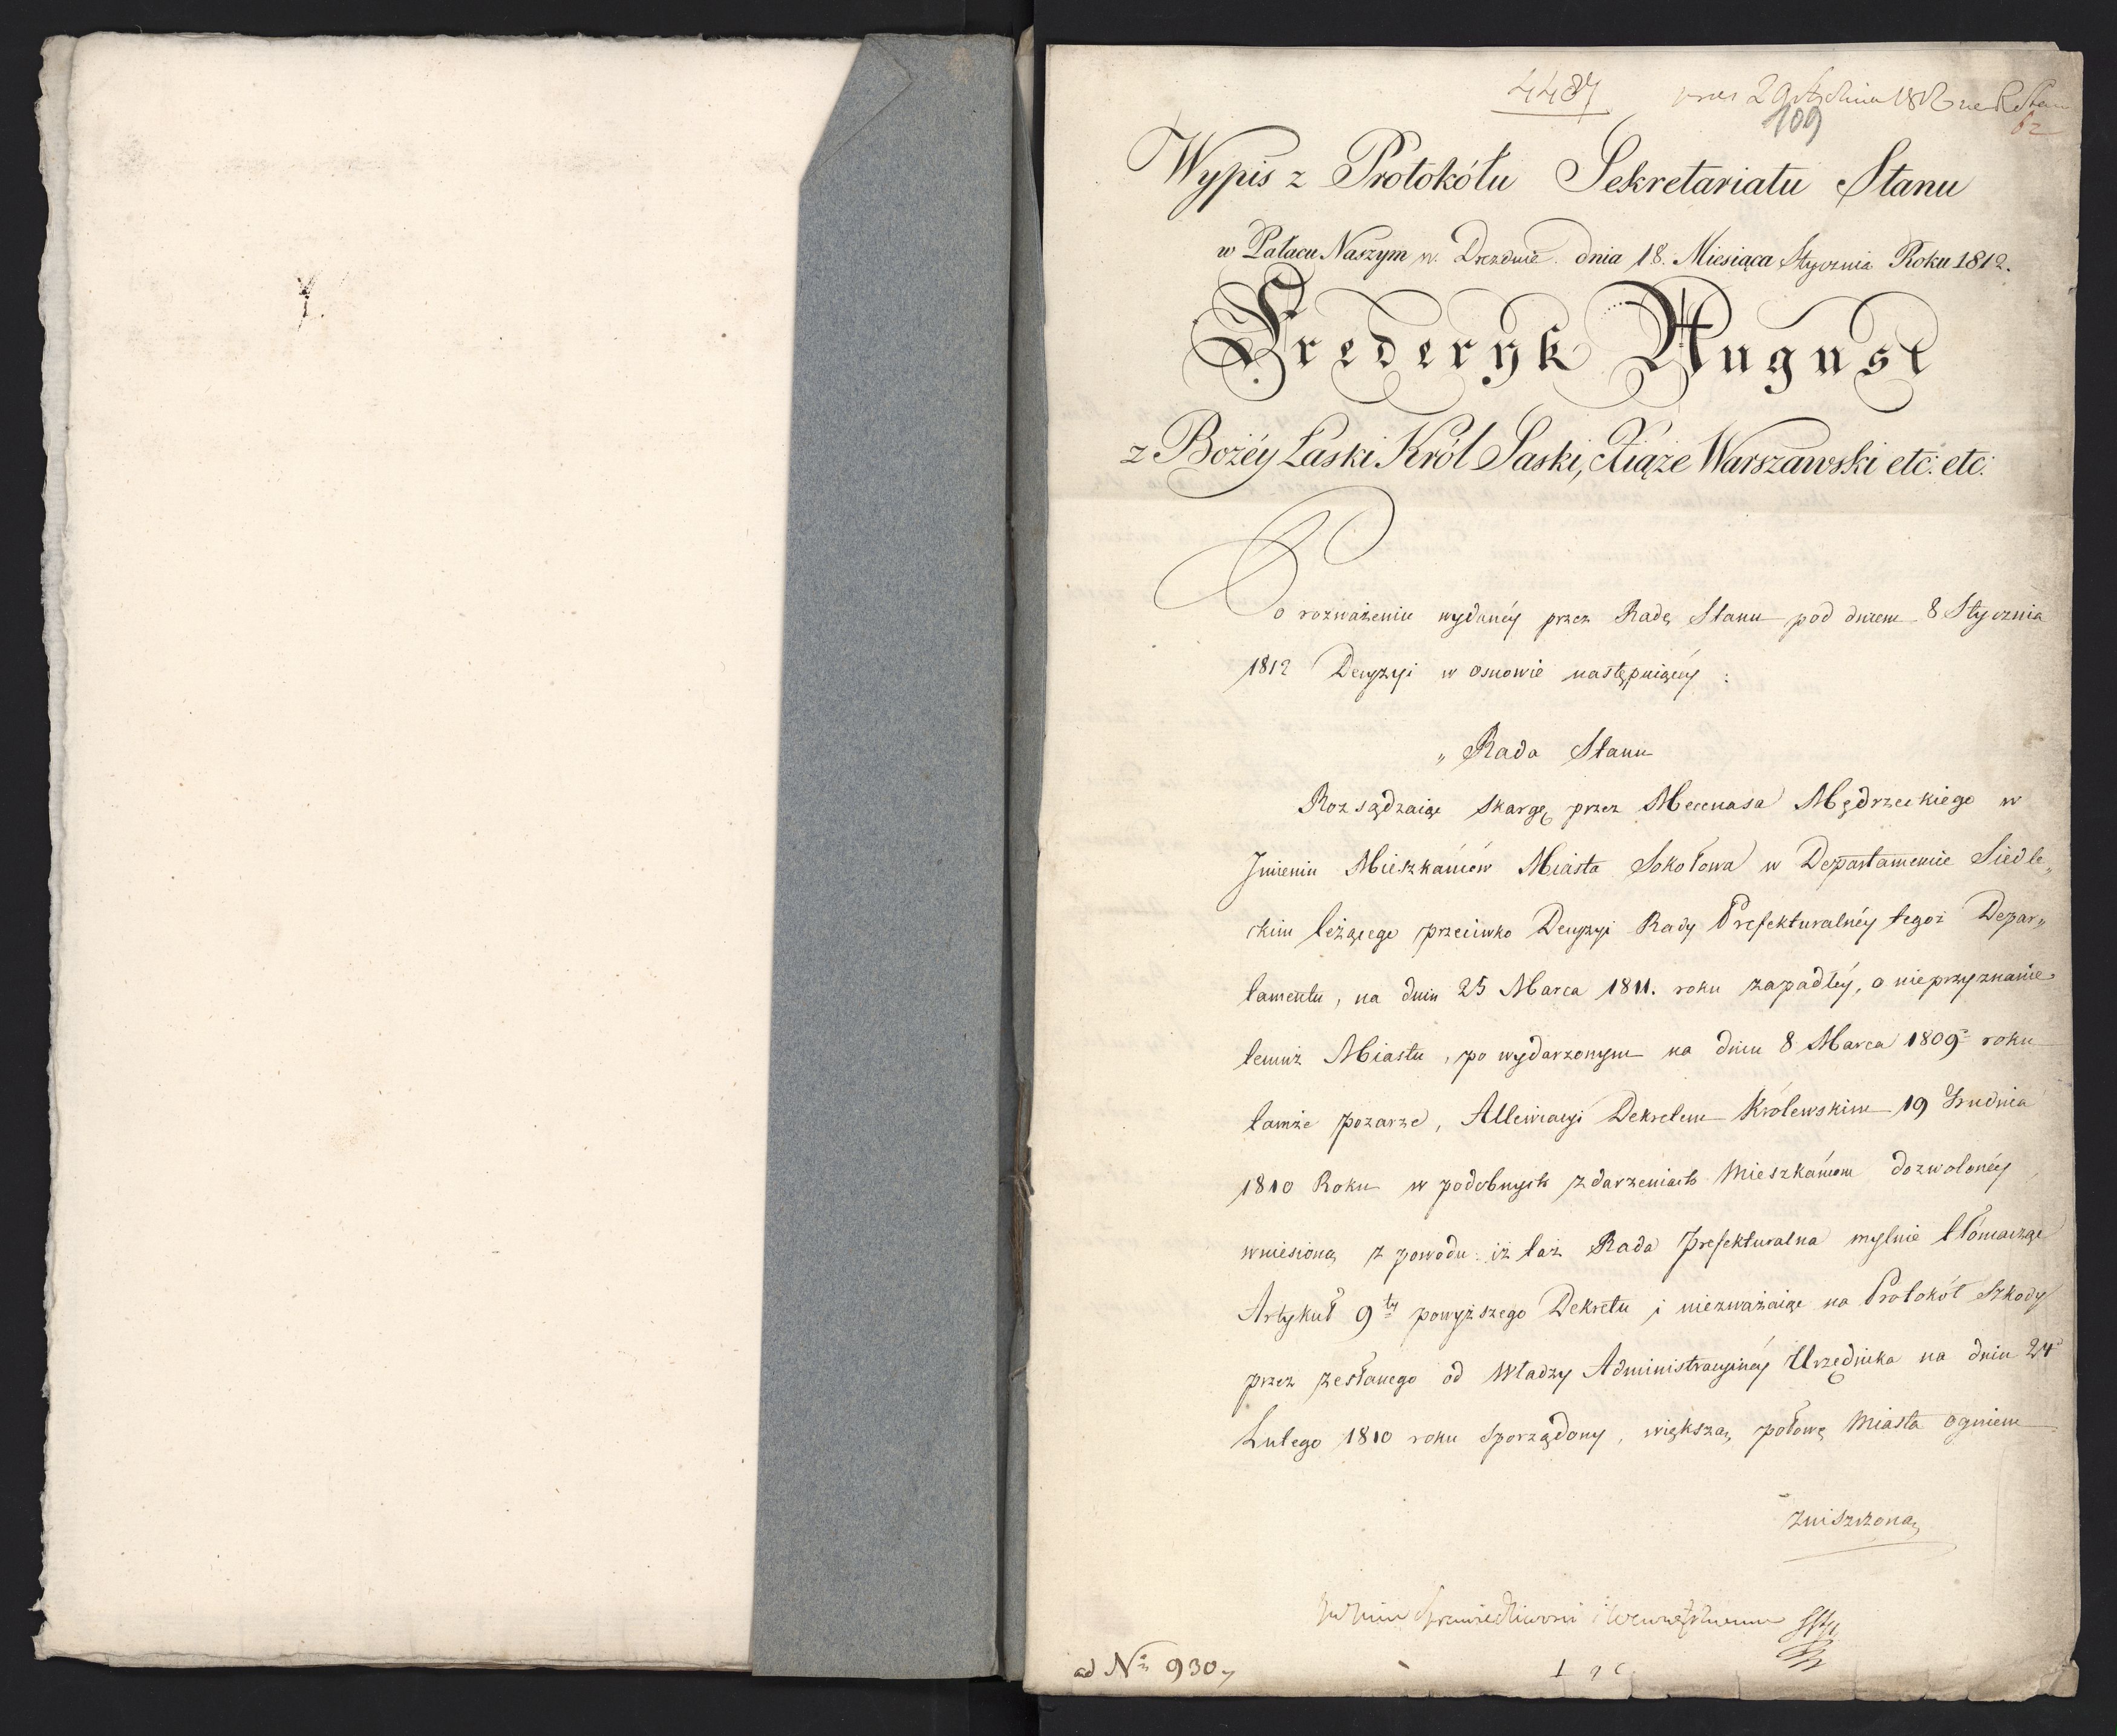 4487
109
62
Wypis z Protokółu Sekretariatu Stanu
w Pałacu Naszym w Dreznie dnia 18. Miesiąca Stycznia Roku 1812.
Frederyk August
z Bożéy Łaski Król Saski, Xiąże Warszawski etc: etc:
Po rozważeniu wydanéy przez Radę Stanu pod dniem 8 Stycznia
1812 Decyzyi w osnowie następuiącéy :
„Rada Stanu
Rozsądzaiąc skargę przez Mecenasa Mędrzeckiego w
Jmieniu Mieszkańców Miasta Sokołowa w Departamencie Siedle„
ckim leżącego przeciwko Decyzyi Rady Prefekturalnéy tegoż Depar„
tamentu, na dniu 25 Marca 1811. roku zapadłéy, o nieprzyznanie
temuż Miastu, po wydarzonym na dniu 8 Marca 1809 roku
tamże pożarze, Allewiacyi Dekretem Królewskim 19 Grudnia
1810 Roku w podobnych zdarzeniach Mieszkańcom dozwolonéy
wniesioną z powodu: iż taż Rada Prefekturalna mylnie tłómacząc
Artykuł 9ty powyższego Dekretu i niezważaiąc na Protokół Szkody
przez zesłanego od Władzy Administracyinéy Urzędnika na dniu 24
Lutego 1810 roku sporządzony, większą połowę Miasta ogniem
zniszczoną
Sprawiedliwości i
ad Nr 930